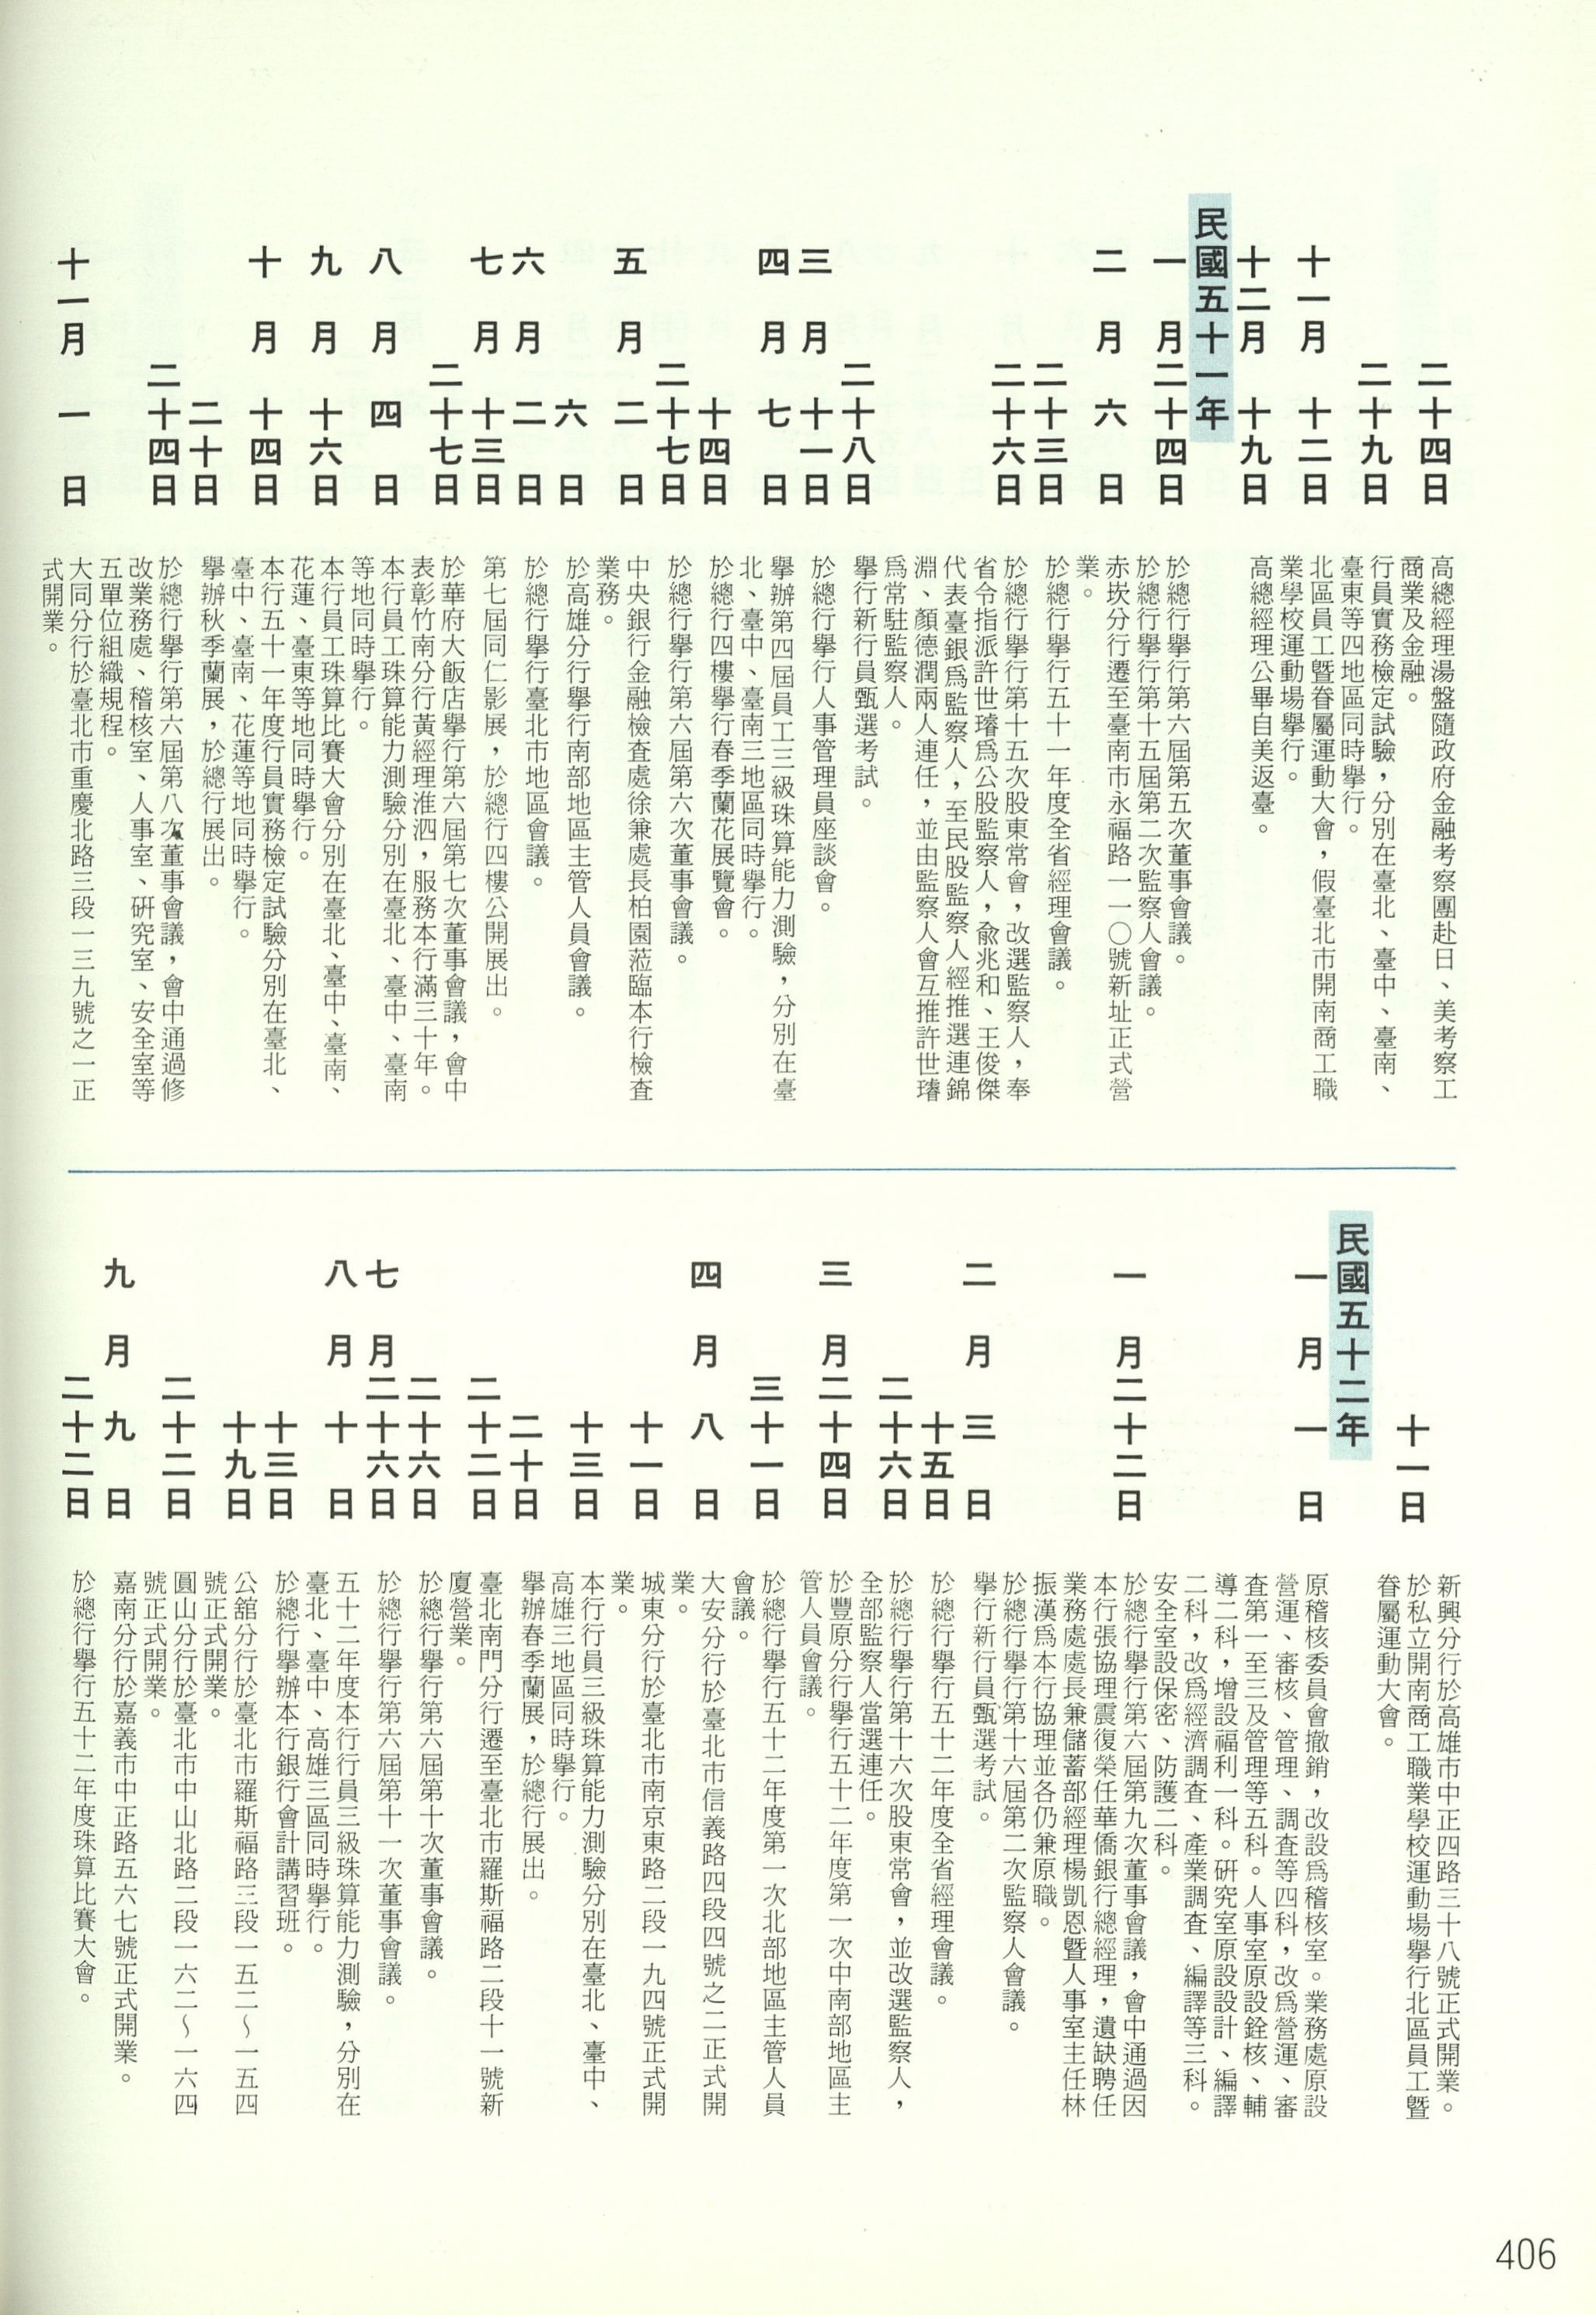 二十四日
高總經理湯盤隨政府金融考察團赴日、美考察工
商業及金融。
二十九日
行員實務檢定試驗，分別在臺北、臺中、臺南、
臺東等四地區同時舉行。
十一月 十二日
北區員工暨眷屬運動大會，假臺北市開南商工職
業學校運動場舉行。
十二月 十九日
高總經理公畢自美返臺。
民國五十一年
一 月二十四日
於總行舉行第六屆第五次董事會議。
於總行舉行第十五屆第二次監察人會議。
二 月 六 日
赤崁分行遷至臺南市永福路一一〇號新址正式營
業。
二十三日
於總行舉行五十一年度全省經理會議。
二十六日
於總行舉行第十五次股東常會，改選監察人，奉
省令指派許世璿爲公股監察人，兪兆和、王俊傑
代表臺銀爲監察人，至民股監察人經推選連錦
淵、顏德潤兩人連任，並由監察人會互推許世璿
爲常駐監察人。
二十八日
舉行新行員甄選考試。
三 月 十一日
於總行舉行人事管理員座談會。
四 月 七 日
舉辦第四屆員工三級珠算能力測驗，分別在臺
北、臺中、臺南三地區同時舉行。
十四日
於總行四樓舉行春季蘭花展覽會。
二十七日
於總行舉行第六屆第六次董事會議。
五 月 二 日
中央銀行金融檢查處徐兼處長柏園蒞臨本行檢查
業務。
六 日
於高雄分行舉行南部地區主管人員會議。
六 月 二 日
於總行舉行臺北市地區會議。
七 月 十三日
第七屆同仁影展，於總行四樓公開展出。
二十七日
於華府大飯店舉行第六屆第七次董事會議，會中
表彰竹南分行黃經理淮泗，服務本行滿三十年。
八 月 四 日
本行員工珠算能力測驗分別在臺北、臺中、臺南
等地同時舉行。
九 月 十六日
本行員工珠算比賽大會分別在臺北、臺中、臺南、
花蓮、臺東等地同時舉行。
十 月 十四日
本行五十一年度行員實務檢定試驗分別在臺北、
臺中、臺南、花蓮等地同時舉行。
二十日
舉辦秋季蘭展，於總行展出。
二十四日
於總行舉行第六屆第八次董事會議，會中通過修
改業務處、稽核室、人事室、研究室、安全室等
五單位組織規程。
十一月 一 日
大同分行於臺北市重慶北路三段一三九號之一正
式開業。
十一日
新興分行於高雄市中正四路三十八號正式開業。
於私立開南商工職業學校運動場舉行北區員工暨
眷屬運動大會。
民國五十二年
一 月 一 日
原稽核委員會撤銷，改設爲稽核室。業務處原設
營運、審核、管理、調查等四科，改爲營運、審
查第一至三及管理等五科。人事室原設銓核、輔
導二科，增設福利一科。研究室原設設計、編譯
二科，改爲經濟調查、產業調查、編譯等三科。
安全室設保密、防護二科。
一 月二十二日
於總行舉行第六屆第九次董事會議，會中通過因
本行張協理震復榮任華僑銀行總經理，遺缺聘任
業務處處長兼儲蓄部經理楊凱恩暨人事室主任林
振漢爲本行協理並各仍兼原職。
於總行舉行第十六屆第二次監察人會議。
二 月 三 日
舉行新行員甄選考試。
十五日
於總行舉行五十二年度全省經理會議。
二十六日
於總行舉行第十六次股東常會，並改選監察人，
全部監察人當選連任。
三 月二十四日
於豐原分行舉行五十二年度第一次中南部地區主
管人員會議。
三十一日
於總行舉行五十二年度第一次北部地區主管人員
會議。
四 月 八 日
大安分行於臺北市信義路四段四號之二正式開
業。
十一日
城東分行於臺北市南京東路二段一九四號正式開
業。
十三日
本行行員三級珠算能力測驗分別在臺北、臺中、
高雄三地區同時舉行。
二十日
舉辦春季蘭展，於總行展出。
二十二日
臺北南門分行遷至臺北市羅斯福路二段十一號新
廈營業。
二十六日
於總行舉行第六屆第十次董事會議。
七 月二十六日
於總行舉行第六屆第十一次董事會議。
八 月 十 日
五十二年度本行行員三級珠算能力測驗，分別在
臺北、臺中、高雄三區同時舉行。
十三日
於總行舉辦本行銀行會計講習班。
十九日
公舘分行於臺北市羅斯福路三段一五二～一五四
號正式開業。
二十二日
圓山分行於臺北市中山北路二段一六二～一六四
號正式開業。
九 月 九 日
嘉南分行於嘉義市中正路五六七號正式開業。
二十二日
於總行舉行五十二年度珠算比賽大會。
406